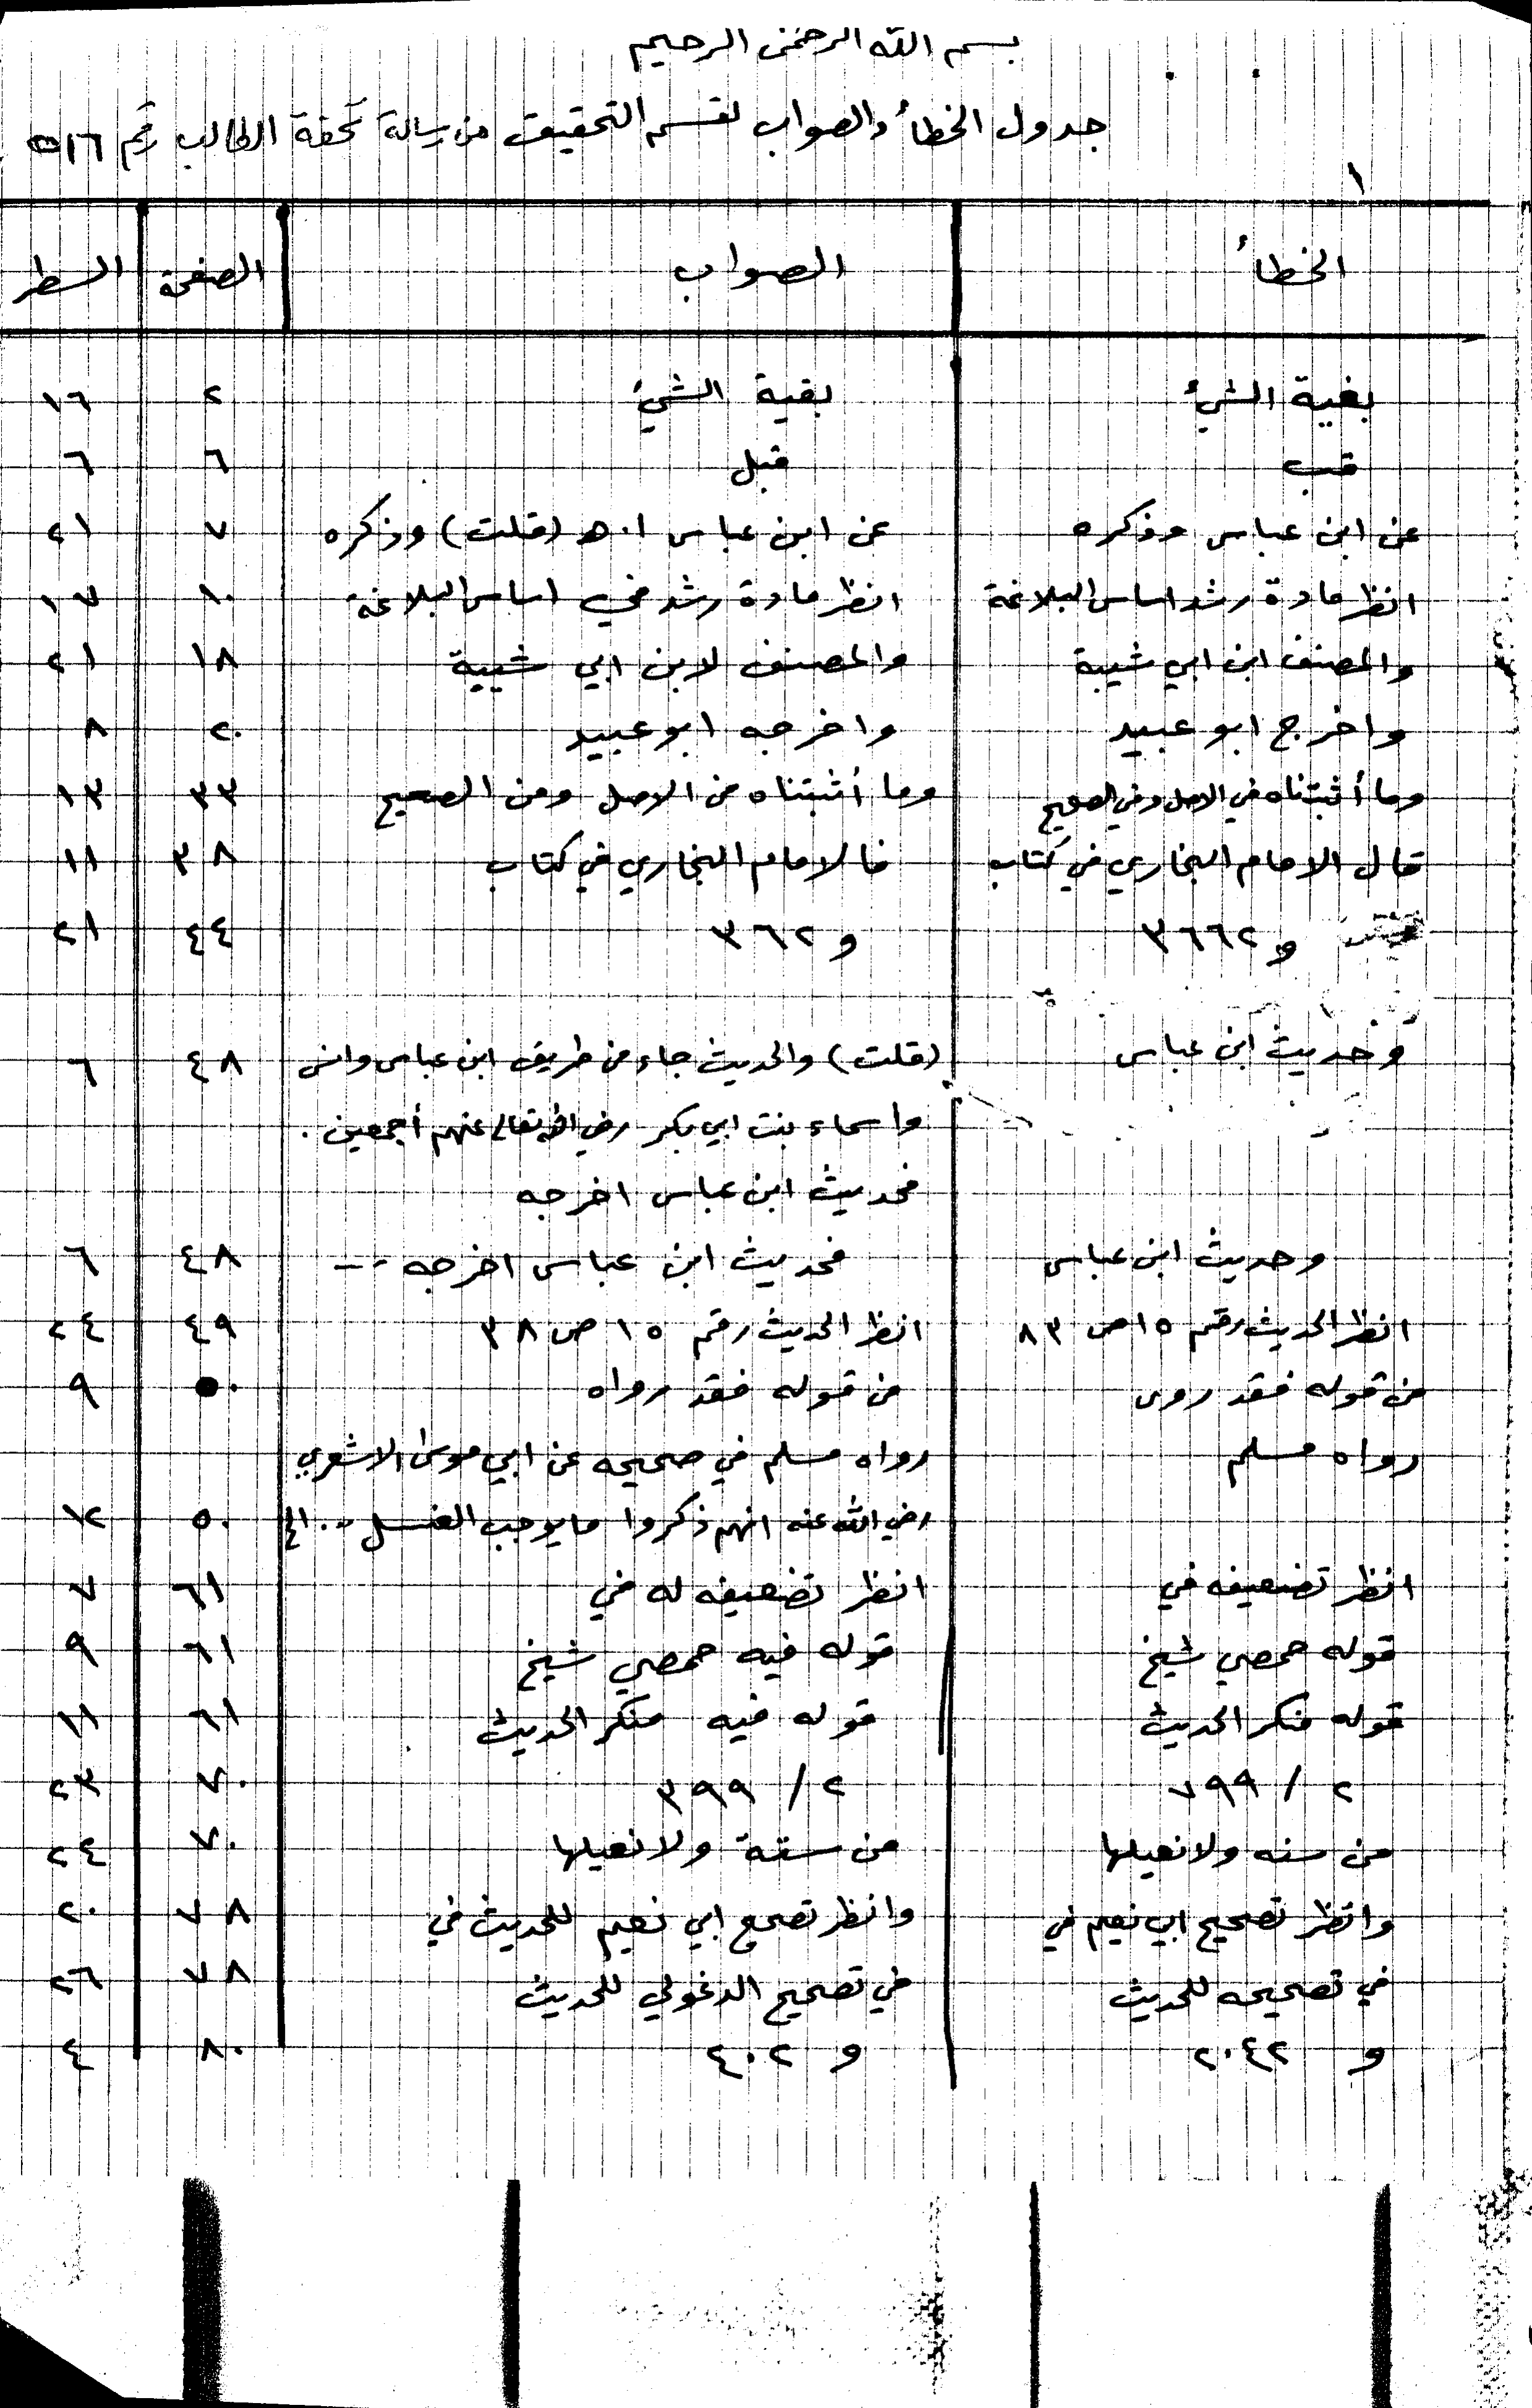 بسم الله الرحمن الرحيم
جدول الخطأ والصواب لقسم التحقيق من رسالة تحفة الطالب رقم ٥١٦
١
الخطأ الصواب الصفحة السطر
بغية الشيء بقية الشيء ٢ ١٦
قب قبل ٦ ٦
عن ابن عباس وذكره عن ابن عباس ا.ه (قلت) وذكره ٧ ٢١
انظر مادة رشد اساس البلاغة انظر مادة رشد في اساس البلاغة ١٠ ١٧
والمصنف ابن ابي شيبة والمصنف لابن ابي شيبة ١٨ ٢١
واخرج ابو عبيد واخرجه ابو عبيد ٢٠ ٨
وما أثبتناه في الاصل وفي الصحيح وما أثبتناه من الاصل ومن الصحيح ٣٣ ١٣
قال الامام البخاري في كتاب فالامام البخاري في كتاب ٣٨ ١١
و ٣٦٦٢ و ٣٦٢ ٤٤ ٢١
وحديث ابن عباس (قلت) والحديث جاء من طريق ابن عباس وانس ٤٨ ٦
واسماء بنت ابي بكر رضي الله تعالى عنهم أجمعين .
فحديث ابن عباس اخرجه
وحديث ابن عباس فحديث ابن عباس اخرجه -- ٤٨ ٦
انظر الحديث رقم ١٥ ص ٨٣ انظر الحديث رقم ١٥ ص ٣٨ ٤٩ ٢٤
من قوله فقد روى من قوله فقد رواه ٥٠ ٩
رواه مسلم رواه مسلم في صحيحه عن ابي موسى الاشعري
رضي الله عنه انهم ذكروا ما يوجب الغسل ... الخ ٥٠ ١٢
انظر تضعيفه في انظر تضعيفه له في ٦١ ٧
قوله حمصي شيخ قوله فيه حمصي شيخ ٦١ ٩
قوله منكر الحديث قوله فيه منكر الحديث ٦١ ١١
٢ / ٧٩٩ ٢ / ٣٩٩ ٧٠ ٢٣
من سنه ولا نعيلها من ستة ولا نعيلها ٧٠ ٢٤
وانظر تصحيح ابي نعيم في وانظر تصحيح ابي نعيم للحديث في ٧٨ ٢٠
في تصحيحه للحديث في تصحيح الدغولي للحديث ٧٨ ٢٦
و ٢٠٤٢ و ٤٠٢ ٨٠ ٤